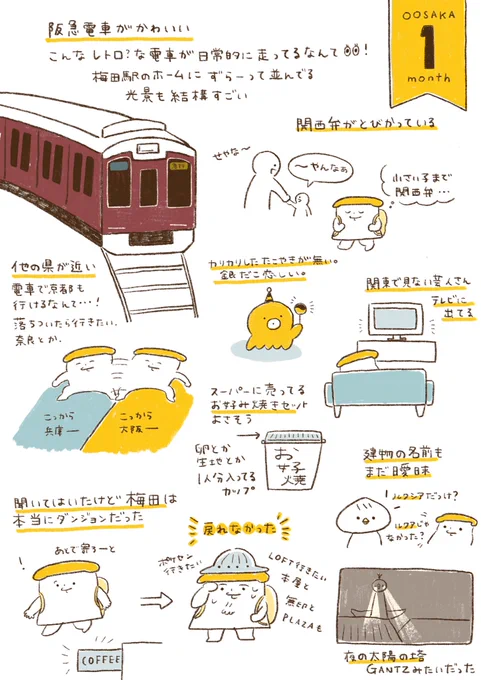 OOSAKA
1
month
阪急電車がかわいい
こんなレトロ?な電車が日常的に走ってるなんて!
梅田駅のホームにずらーって並んでる
光景も結構すごい
関西弁がとびかっている
せやな〜
〜やんなぁ
小さい子まで
関西弁…
他の県が近い
電車で京都も
行けるなんて…!
落ちついたら行きたい、
奈良とか。
こっから
兵庫ー
こっから
大阪ー
カリカリしたたこやきが無い。
銀だこ恋しい。
関東で見ない芸人さん
テレビに
出てる
スーパーに売ってる
お好み焼きセット
よさそう
卵とか
生地とか
1人分入ってる
カップ
お好焼
建物の名前も
まだ曖昧
ルクシアだっけ?
ルクアじゃ
なかった?
聞いてはいたけど梅田は
本当にダンジョンだった
あとで寄ろーと
COFFEE
戻れなかった
ポケセン
行きたい
LOFT行きたい
本屋と
無印と
PLAZAも
夜の太陽の塔
GANTZみたいだった